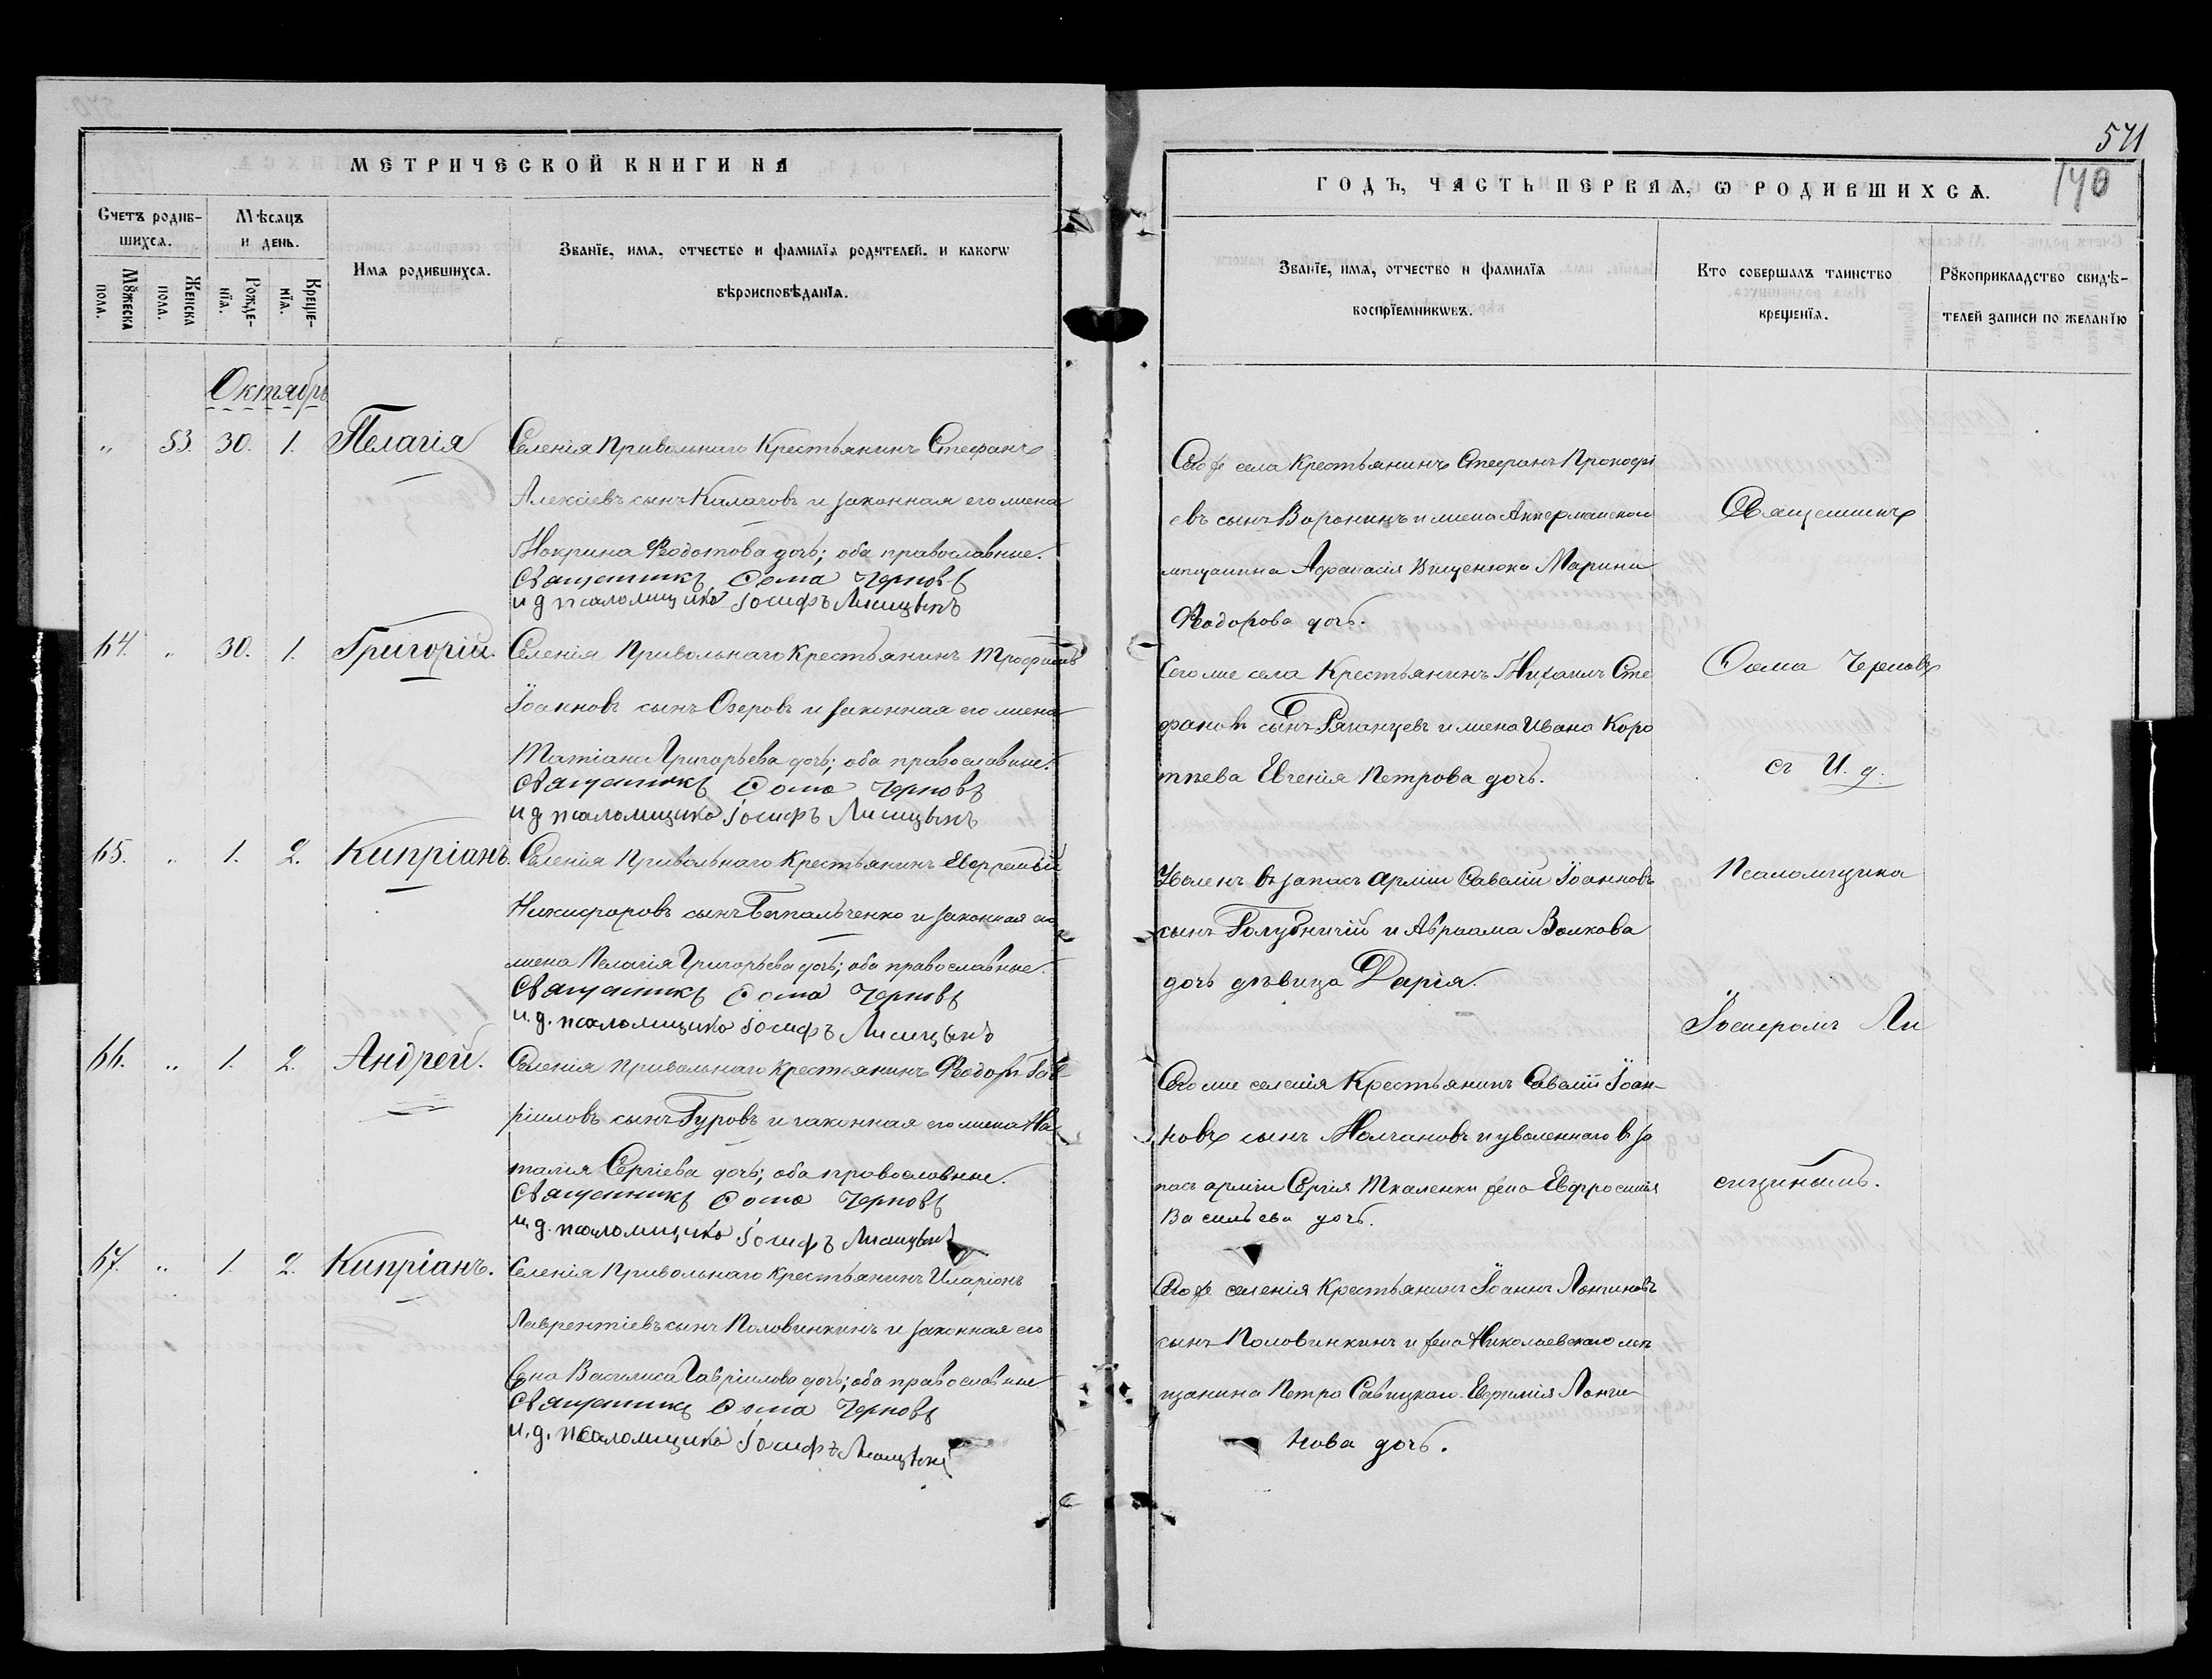 МЕТРИЧЕСКОЙ КНИГИ НА
Счетъ родив-
шихсѧ.
Мѣсѧцъ
и день.
Имѧ родившихсѧ.
Званїе, имѧ, отчество и фамилїѧ родителей, и какогѡ
вѣроисповѣданїѧ.
Мꙋжеска
пола.
Женска
пола.
Рожде-
нїѧ.
Креще-
нїѧ.
Октябрь
" 53. 30. 1. Пелагія
Селенія Привольнаго Крестьянинъ Стефанъ
Алексіевъ сынъ Калачовъ и законная его жена
Мокрина Ѳедотова дочь; оба православные.
Священникъ Ѳома Черновъ
и д псаломщика Іосифъ Лисицынъ
64. " 30. 1. Григорій.
Селенія Привольнаго Крестьянинъ Трофимъ
Іоанновъ сынъ Озеровъ и законная его жена
Татіана Григорьева дочь; оба православные.
Священникъ Ѳома Черновъ
и д псаломщика Іосифъ Лисицынъ
65. " 1. 2. Кипріанъ.
Селенія Привольнаго Крестьянинъ
Никифоровъ сынъ и законная его
жена Пелагія Григорьева дочь; оба православные.
Священникъ Ѳома Черновъ
и.д. псаломщика Іосифъ Лисицынъ
66. " 1. 2. Андрей.
Селенія Привольнаго Крестьянинъ Ѳедоръ Гав-
ріиловъ сынъ Гуровъ и законная его жена На-
талія Сергіева дочь; оба православные.
Священникъ Ѳома Черновъ
и.д. псаломщика Іосифъ Лисицынъ
67. " 1. 2. Кипріанъ.
Селенія Привольнаго Крестьянинъ Иларіонъ
Лаврентіевъ сынъ Половинкинъ и законная его
жена Василиса Гавріилова дочь; оба православные
Священникъ Ѳома Черновъ
и.д. псаломщика Іосифъ Лисицынъ
571
140
ГОДЪ, ЧАСТЬ ПЕРВАѦ, Ѡ РОДИВШИХСѦ.
Званїе, имѧ, отчество и фамилїѧ
воспрїемникѡвъ.
Кто совершалъ таинство
крещенїѧ.
Рꙋкоприкладство свидѣ-
телей записи по желанїю
Того же села Крестьянинъ Стефанъ Прокофі
евъ сынъ Воронинъ и жена Аккерманскаго
мещанина Афанасія Вищенюка Марина
Ѳедорова дочь.
Того же села Крестьянинъ Михаилъ Сте
фановъ сынъ Рязанцевъ и жена Ивана Коро
теева Евгенія Петрова дочь.
Уволенъ въ запасъ арміи Савелій Іоанновъ
сынъ Голубничій и Авраама Волкова
дочь дѣвица Дарія.
Того же селенія Крестьянинъ Савелій Іоан-
новъ сынъ Молчановъ и уволеннаго въ за
пасъ арміи Сергія Ткаленки жена Евфросинія
Васильева дочь.
Того же селенія Крестьянинъ Іоаннъ Лонгиновъ
сынъ Половинкинъ и жена Николаевскаго ме
щанина Петра Савицкаго Евфимія Лонги-
нова дочь.
Священникъ
Ѳома Черновъ
съ И. д.
Псаломщика
Іосифомъ Ли
сицинымъ.